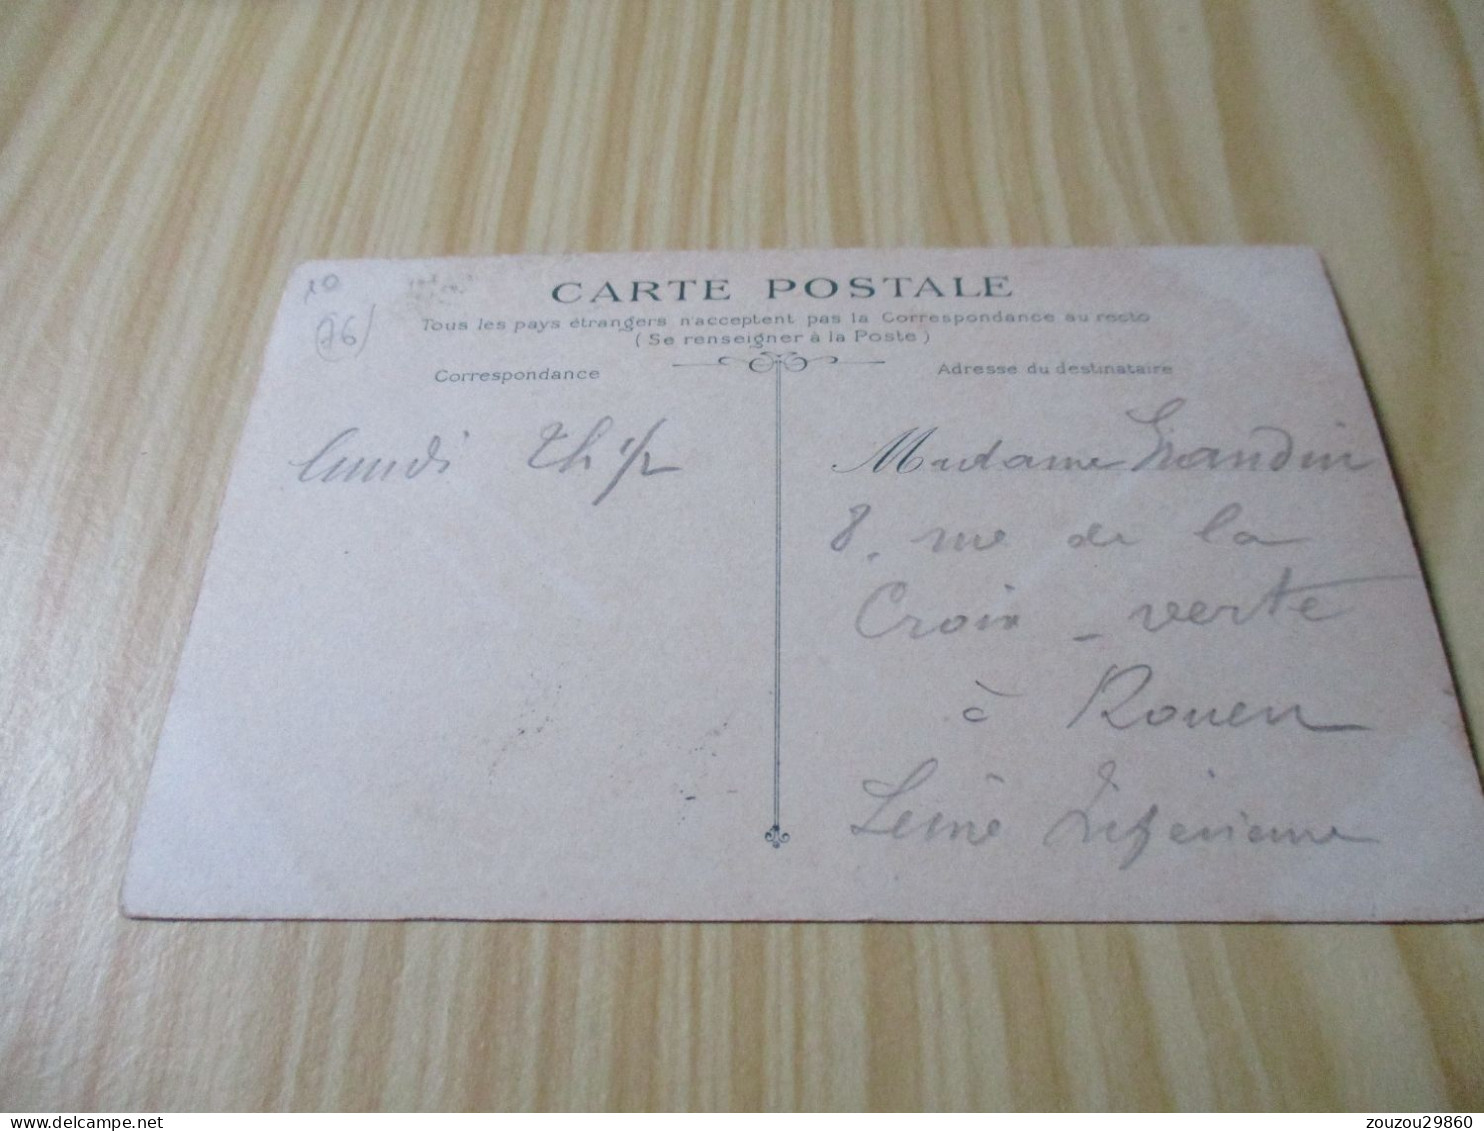 10
(76)
CARTE POSTALE
Tous les pays étrangers n'acceptent pas la Correspondance au recto
(Se renseigner à la Poste)
Correspondance
Adresse du destinataire
lundi 2h ½
Madame Grandin
8, rue de la
Croix - verte
à Rouen
Seine Inférieure
zouzou29860